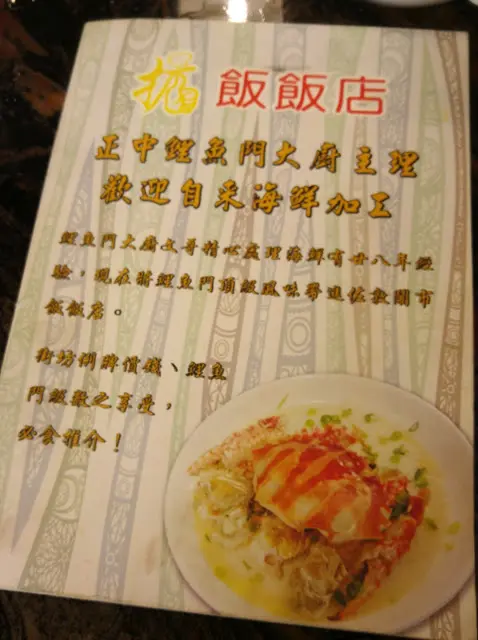 飯飯店
正中鯉魚門大廚主理
歡迎自采海鮮加工
鯉魚門大廚文哥精心處理海鮮有廿八年經
驗，現在將鯉魚門頂級風味帶進佐敦鬧市
飯飯店。
街坊價錢、鯉魚
門級數之享受，
必食推介！